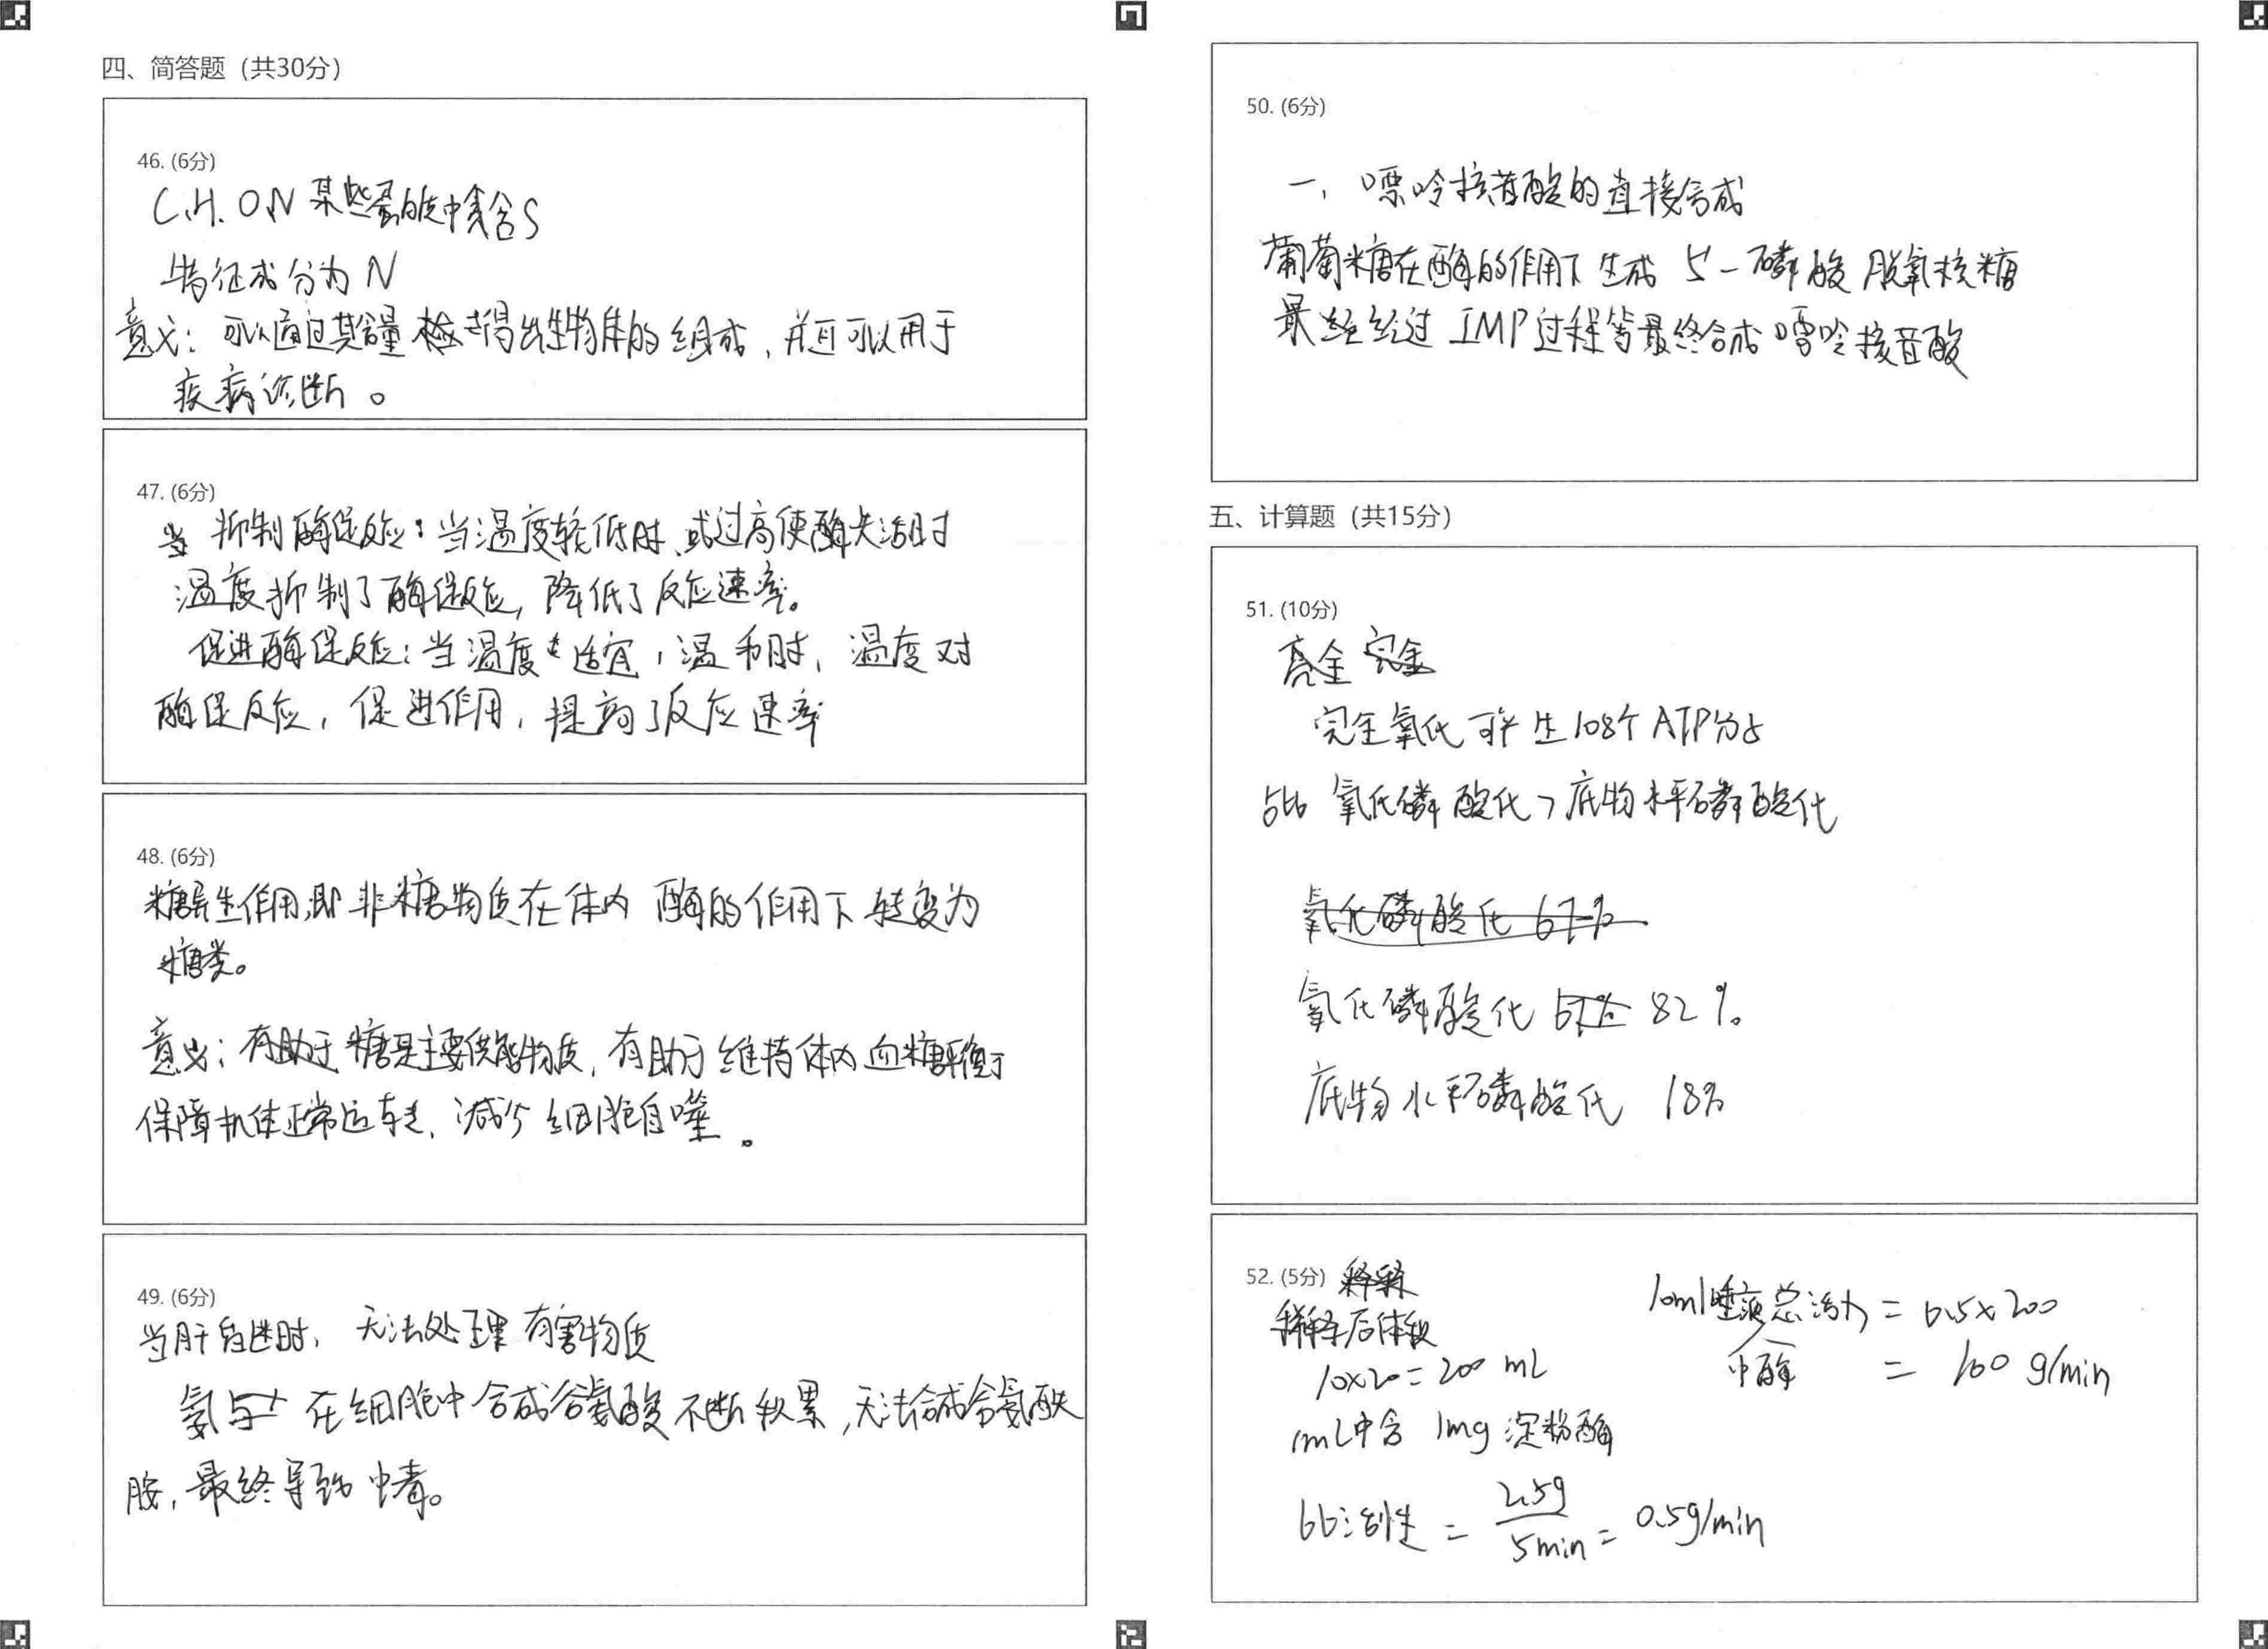 四、简答题（共30分）
46. (6分)
C.H. O.N 某些蛋白质中含S
特征成分为 N
意义：可以通过其含量 得出生物体的组成，并且可以用于
疾病诊断。
47. (6分)
抑制酶促反应：当温度较低时、或过高使酶失活时
温度抑制了酶促反应，降低了反应速率。
促进酶促反应：当温度适宜，温和时，温度对
酶促反应，促进作用，提高了反应速率
48. (6分)
糖异生作用，即非糖物质在体内 酶的作用下转变为
糖类。
意义：有助于糖是主要供能物质，有助于维持体内血糖平衡
保障机体正常运转、减少细胞自噬。
49. (6分)
当肝 时，无法处理有害物质
氨 在细胞中合成谷氨酸不断积累，无法合成谷氨酰
胺，最终导致中毒。
50. (6分)
一、嘌呤核苷酸的直接合成
葡萄糖在酶的作用下生成 5－磷酸脱氧核糖
最终经过 IMP过程等最终合成嘌呤核苷酸
五、计算题（共15分）
51. (10分)
完全 完全
完全氧化可产生108个ATP分子
占比 氧化磷酸化＞底物水平磷酸化
氧化磷酸化 67%
氧化磷酸化 82%
底物水平磷酸化 18%
52. (5分) 稀释
稀释后体积
10×20=200 mL
1mL中含 1mg 淀粉酶
比活性 = 2.5g/5min = 0.5g/min
10ml唾液总活力 = 0.5×200
中酶 = 100 g/min